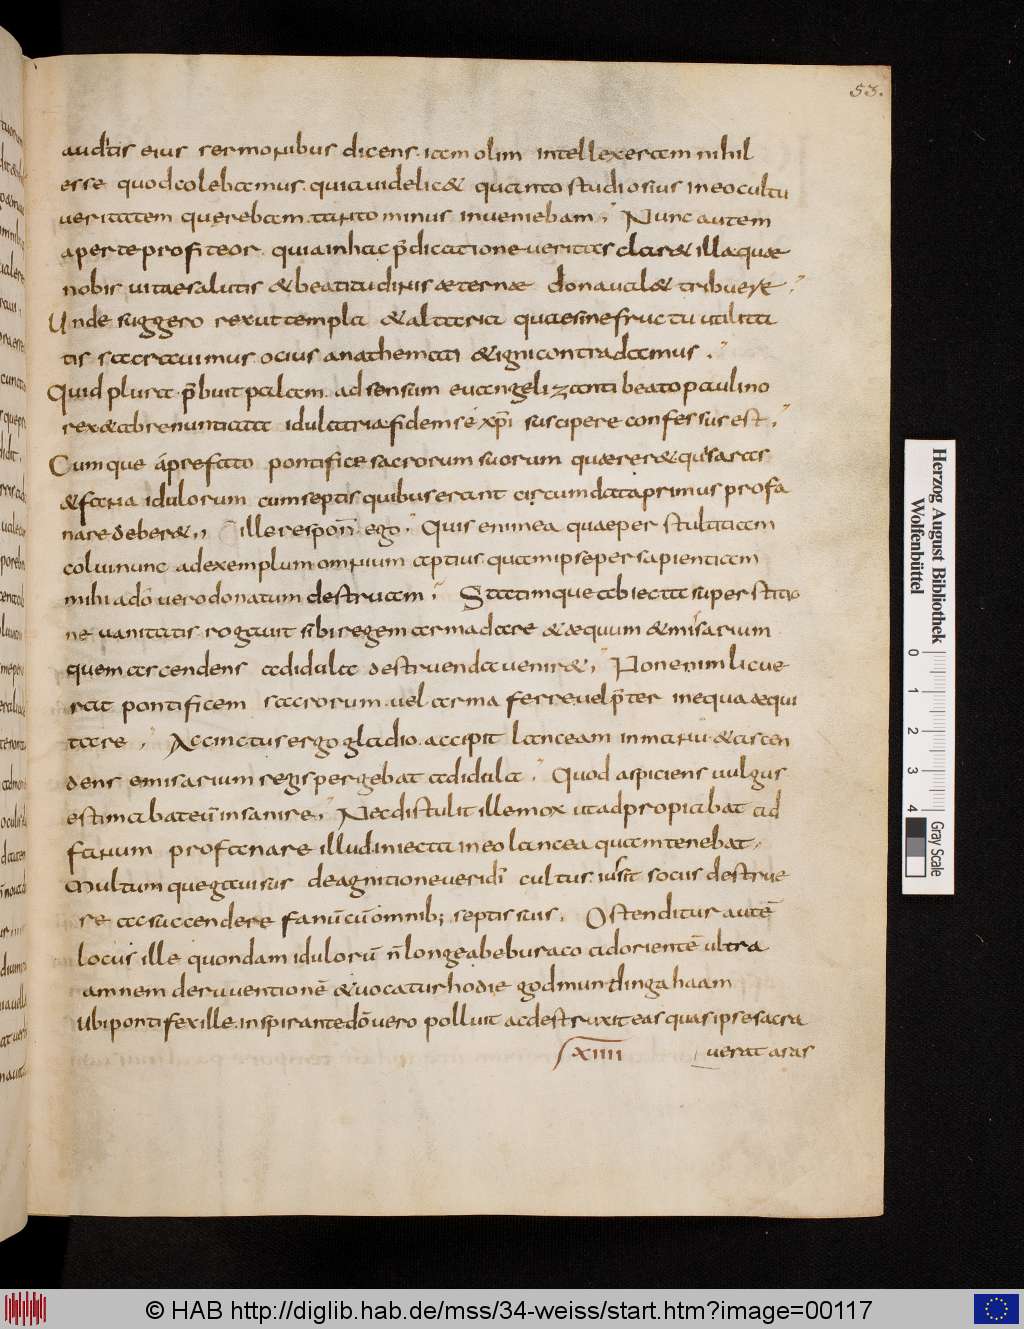 53.
auditis eius sermonibus dicens. iam olim intellexeram nihil
esse quod colebamus. quia uidelic& quanto studiosius in eo cultu
ueritatem querebam. tanto minus inueniebam; Nunc autem
aperte profiteor. quia in hac p̄dicatione ueritas clar& illa quae
nobis uitae salutis & beatitudinis æternæ dona ual& tribuere;
Unde suggero rex ut templa & altaria quae sine fructu utilita
tis sacrauimus ocius anathemati & igni contradamus.
Quid plura. p̄buit palam adsensum euangelizanti beato paulino
rex & abrenuntiata idulatria fidem se xp̄i suscipere confessus est;
Cumque a p̄refato pontifice sacrorum suorum quærer& quis aras
& fana idulorum cum septis quibus erant circumdata primus profa
nare deber&; ille respon̄. ego; Quis enim ea quae per stultitiam
colui nunc ad exemplum omnium aptius quam ipse per sapientiam
mihi a dō uero donatam destruam; Statimque abiecta superstitio
ne uanitatis rogauit sibi regem arma dare & æquum & misarium
quem ascendens ad idula destruenda uenir&; Non enim licue
rat pontificem sacrorum. uel arma ferre. uel p̄ter in equa æqui
tare; Accinctus ergo gladio. accipit lanceam in manu. & ascen
dens emisarium regis pergebat ad idula; Quod aspiciens uulgus
estimabat eū insanire; Nec distulit ille mox ut adpropiabat ad
fanum profanare illud. iniecta in eo lancea quam tenebat.
Multumque gauisus de agnitione ueri dī cultus. iussit socus destrue
re ac succendere fanū cū omnib; septis suis. Ostenditur autē
locus ille quondam idulorū n̄ longe ab eburaco ad orientē ultra
amnem deruuentionē & uocatur hodie godmundinga haam
ubi pontifex ille. inspirante dō uero polluit ac destruxit eas quas ipse sacra
xiiii uerat aras
Herzog August Bibliothek
Wolfenbüttel
0 1 2 3 4
Gray Scale
© HAB http://diglib.hab.de/mss/34-weiss/start.htm?image=00117